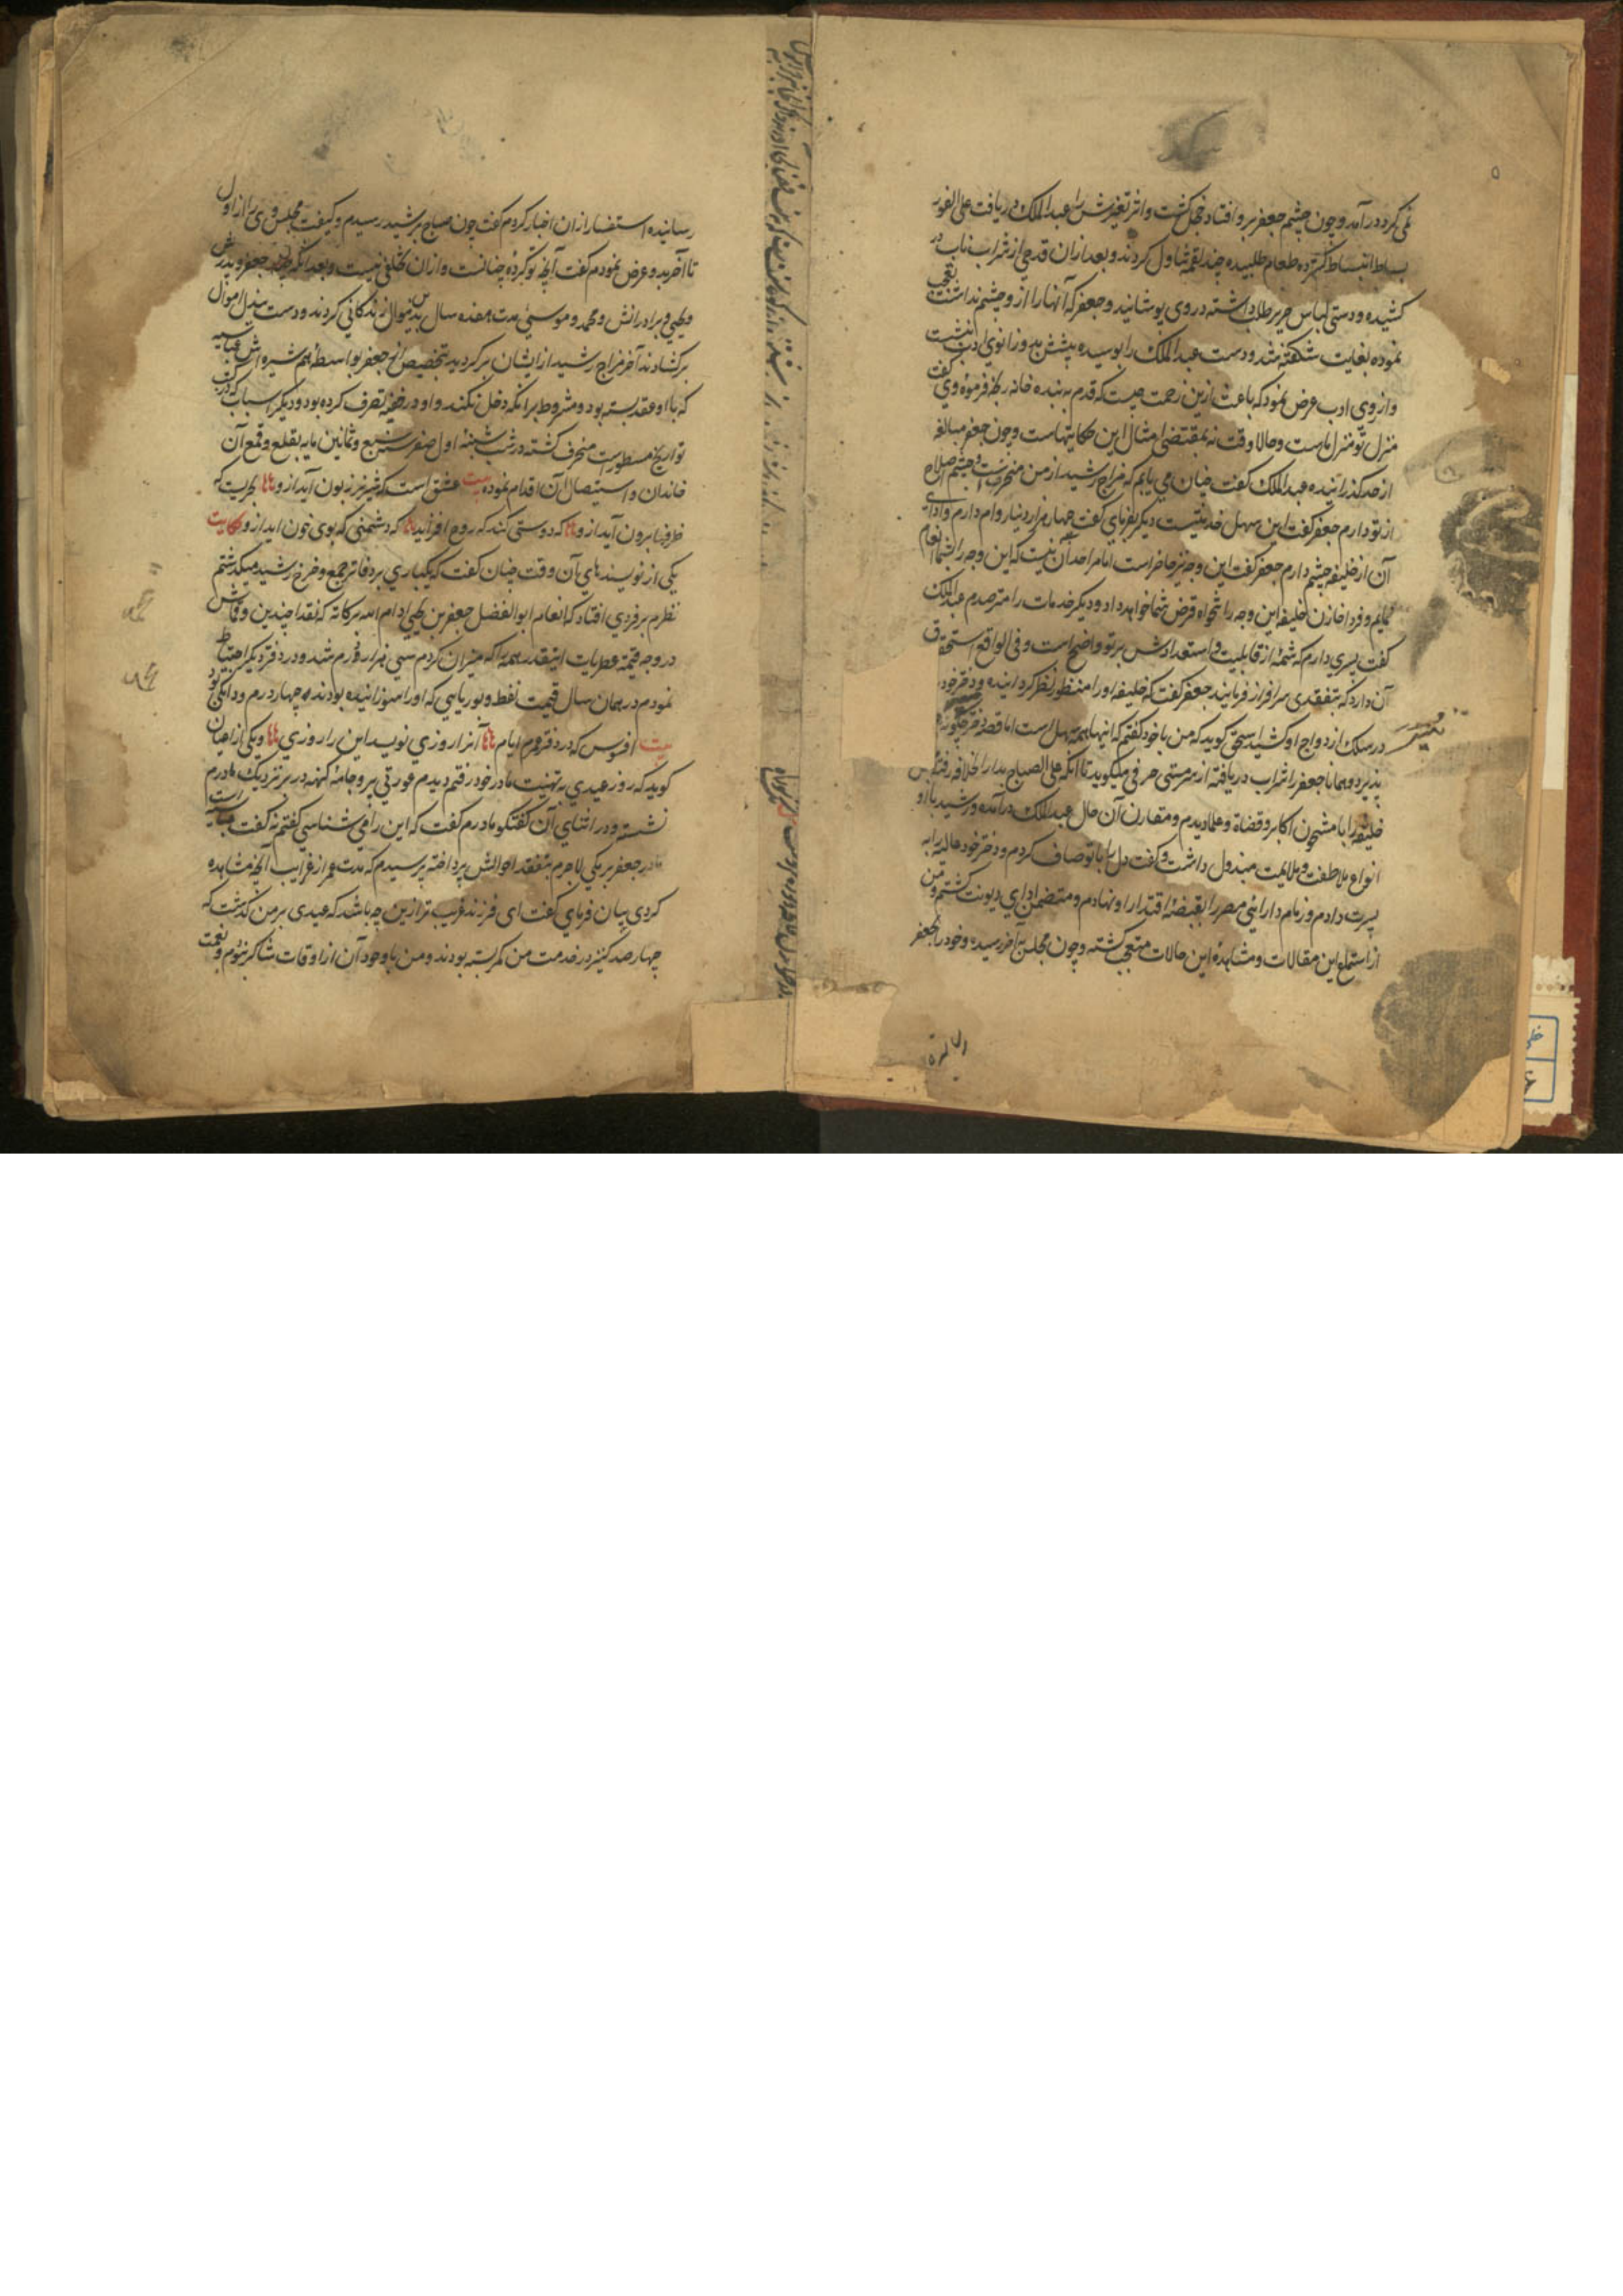 نمی کرد درآمد و چون چشم جعفر برو افتاد خجل گشت و اثر تغیرش را عبدالملک دریافت علی الفور
بساط انبساط گسترده طعام طلبیده چند لقمه تناول کردند و بعد ازان قدحی از شراب ناب در
کشیده و دستی لباس حریر طلب داشته در وی پوشانید و جعفر که آنها را ازو چشم نداشت تعجب
نموده بغایت شکفته شد و دست عبدالملک را بوسیده پیشش بدو زانوی ادب بنشست
و از روی ادب عرض نمود که باعث ازین زحمت چیست که قدم به بنده خانه رنجه فرموده وی گفت
منزل تو منزل ماست و حالا وقت نه مقتضی امثال این حکایتهاست و چون جعفر مبالغه
از حد گذرانیده عبدالملک گفت چنان می یابم که مزاج رشید از من منحرفست و چشم اصلاح
از تو دارم جعفر گفت این سهل خدمتیست دیگر بفرمای گفت چهار هزار دینار وام دارم و ادای
آن از خلیفه چشم دارم جعفر گفت این وجه نیز حاضر است اما مرا حد آن نیست که این وجه را بشما انعام
نمایم و فردا خازن خلیفه این وجه را بتنخواه قرض شما خواهد داد و دیگر خدمات را مترصدم عبدالملک
گفت پسری دارم که شمه از قابلیت و استعدادش بر تو واضح است و فی الواقع استحقاق
آن دارد که بتفقدی سرافراز فرمایند جعفر گفت که خلیفه او را منظور نظر گردانیده و دختر خود
در سلک ازدواج او کشید اسحق گوید که من با خود گفتم که اینها همه سهل است اما قصه دختر چگونه
پذیرد و همانا جعفر را شراب دریافته از سر مستی حرفی میگوید تا آنکه علی الصباح بدار الخلافه رفته پس
خلیفه را با مشحون اکابر و قضاة و علما دیدم و مقارن آن حال عبدالملک درآمده و رشید با او
انواع ملاطفت و ملایمت مبذول داشت و گفت دل را با تو صاف کردم و دختر خود عالیه را به
پسرت دادم و زمام دارائی مصر را بقبضه اقتدار او نهادم و متضمن ادای دیونت گشتم و من
از استماع این مقالات و مشاهده این حالات متعجب گشته و چون مجلس بآخر رسیده و خود را بجعفر
رسانیده استفسار ازان اخبار کردم گفت چون صباح برشید رسیدم و کیفیت مجلس وی را از اول
تا آخر بدو عرض نمودم گفت آنچه تو کرده چنانست و ازان تخلفی نیست و بعد آنکه جعفر و پدرش
و یحیی و برادرانش و محمد و موسی مدت هفده سال بدین منوال زندگانی کردند و دست ببذل اموال
برگشادند آخر مزاج رشید از ایشان برگردید بتخصیص از جعفر بواسطه هم شیره اش عباسیه
که با او عقد بسته بود و مشروط برآنکه دخل نکند و او در خفیه تصرف کرده بود و دیگر اسباب که در کتب
تواریخ مسطور است منحرف گشته در شب شنبه اول صفر سنه سبع و ثمانین مایه بقلع و قمع آن
خاندان و استیصال آن اقدام نموده بیت عشق است که شیر نر زبون آید ازو بحریست که
طرفها برون آید ازو که دوستی کند که روح افزاید که دشمنی که بوی خون آید ازو حکایت
یکی از نویسندهای آن وقت چنان گفت که یکباری بر دفاتر جمع و خرج رشید میگذشتم
نظرم بر فردی افتاد که انعام ابوالفضل جعفر بن یحیی ادام الله برکاته که نقدا چندین و قماش
در وجه قیمة عطریات اینقدر همه را که میزان کردم سی هزار درم شد و در دفتر دیگر احتیاط
نمودم در همان سال قیمت نفط و بوریایی که او را سوزانیده بودند چهار درم و دانگی بود
بیت افسوس که در دفتر عمر ایام آنرا روزی نویسد این را روزی و یکی از اعیان
گوید که روز عیدی به تهنیت مادر خود رفتم دیدم عورتی پیر و جامه کهنه در بر نزدیک مادرم
نشسته و در اثنای آن گفتگو مادرم گفت که این را می شناسی گفتم نه گفت عباسیه است
مادر جعفر برمکی لاجرم بتفقد احوالش پرداخته پرسیدم که مدت عمر از غرایب آنچه مشاهده
کردی بیان فرمای گفت ای فرزند غریب تر ازین چه باشد که عیدی بر من گذشت که
چهار صد کنیز در خدمت من کمر بسته بودند و من با وجود آن از اوقات شاکر نبودم و نعمت